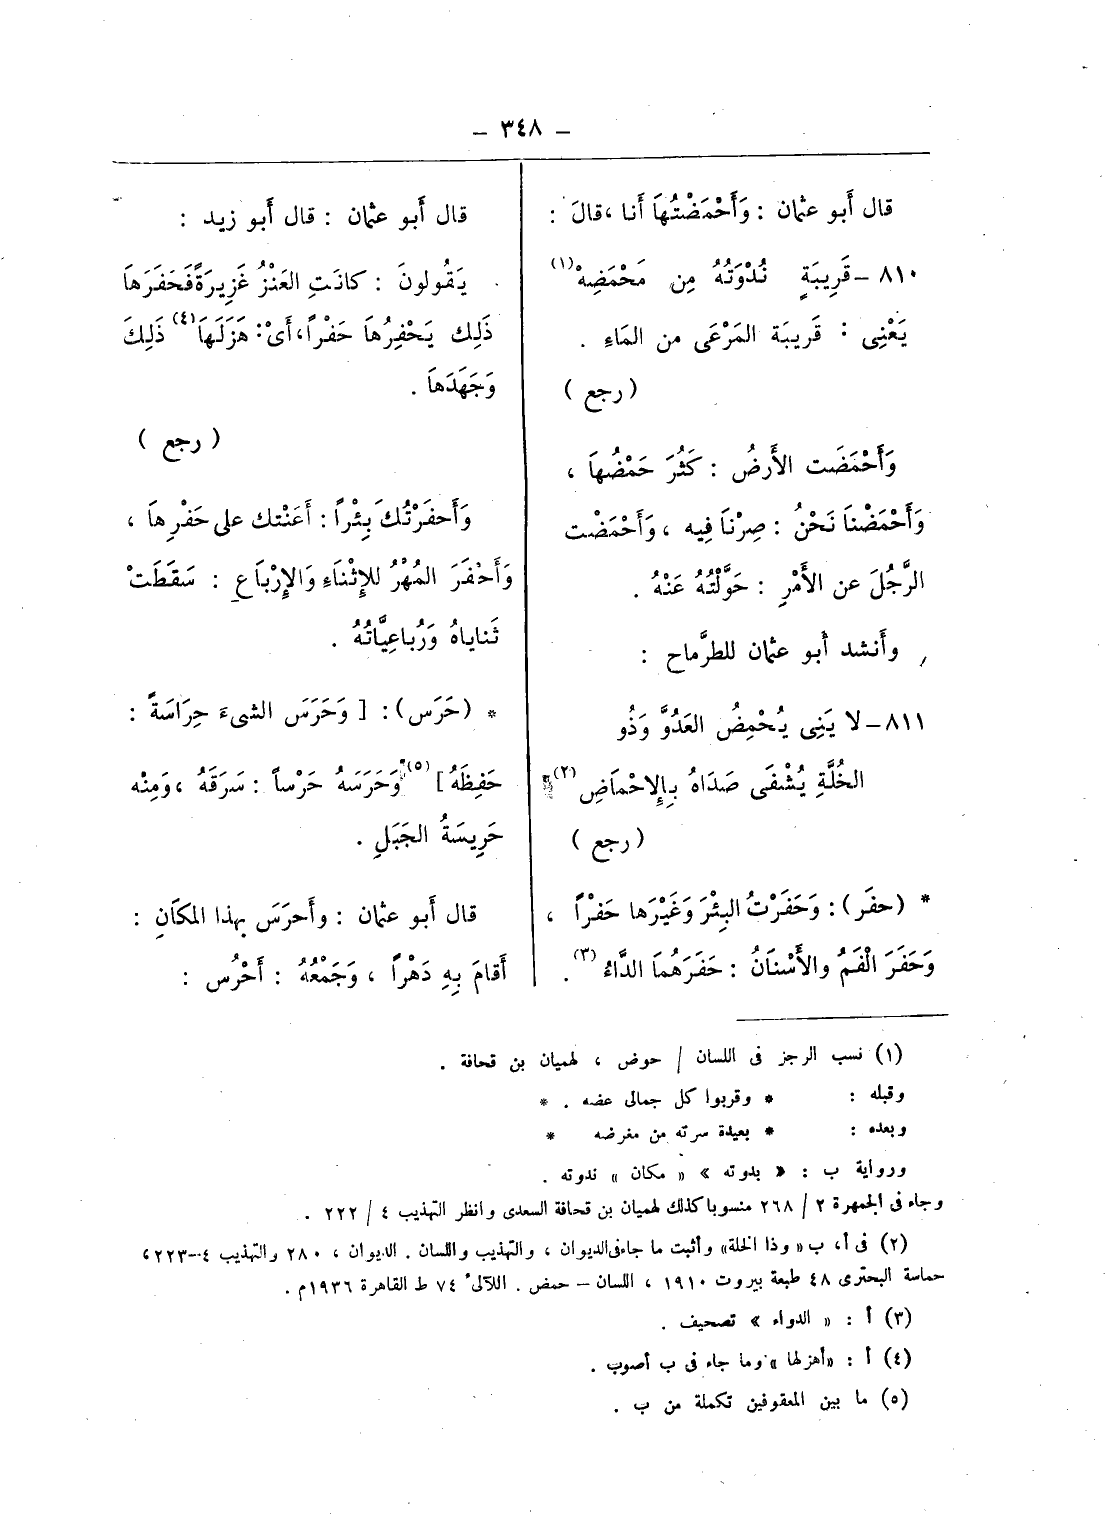 – ٣٤٨ –
قال أَبو عثمان : وَأَحْمَضْتُهَا أَنا ، قالَ :
٨١٠ – قَرِيبَةٍ نُدْوَتُهُ مِن مَحْمَضِهْ (١)
يَعْنِى : قَرِيبَة المَرْعَى من المَاءِ .
( رجع )
وَأَحْمَضَت الأَرضُ : كَثُرَ حَمْضُهَا ،
وَأَحْمَضْنَا نَحْنُ : صِرْنَا فِيه ، وَأَحْمَضْت
الرَّجُلَ عن الأَمْرِ : حَوَّلْتُهُ عَنْهُ .
وأَنشد أَبو عثمان للطرَّماح :
٨١١ – لا يَنِى يُحْمِضُ العَدُوَّ وَذُو
الخُلَّةِ يُشْفَى صَدَاهُ بِالإِحْمَاضِ (٢)
( رجع )
* ( حفَر ) : وَحَفَرْتُ البِئْرَ وَغَيْرَها حَفْرًا ،
وَحَفَرَ الْفَمُ والأَسْنَانُ : حَفَرَهُمَا الدَّاءُ (٣) .
قال أَبو عثمان : قال أَبو زيد :
يَقُولونَ : كانَتِ العَنْزُ غَزِيرَةً فَحَفَرَهَا
ذَلِك يَحْفِرُهَا حَفْرًا ، أَىْ : هَزَلَهَا (٤) ذَلِكَ
وَجَهَدَهَا .
( رجع )
وَأَحفَرْتُكَ بِئْرًا : أَعَنْتك على حَفْرِها ،
وَأَحْفَرَ المُهْرُ للإِثْنَاءِ وَالإِرْبَاعِ : سَقَطَتْ
ثَناياهُ وَرُباعِيَّاتُهُ .
* ( حَرَس ) : [ وَحَرَسَ الشىءَ حِرَاسَةً :
حَفِظَهُ ] (٥) وَحَرَسَهُ حَرْساً : سَرَقَهُ ، وَمِنْه
حَرِيسَةُ الجَبَلِ .
قال أَبو عثمان : وأَحرَسَ بهذا المكَانِ :
أَقامَ بِهِ دَهْرًا ، وَجَمْعُهُ : أَحْرُس :
(١) نسب الرجز فى اللسان / حوض ، لهميان بن قحافة .
وقبله : * وقربوا كل جمالى عضه . *
وبعده : * بعيدة سرته من مغرضه *
ورواية ب : « بدوته » « مكان » ندوته .
وجاء فى الجمهرة ٢ / ٢٦٨ منسوبا كذلك لهميان بن قحافة السعدى وانظر التهذيب ٤ / ٢٢٢ .
(٢) فى أ ، ب « وذا الخلة » وأثبت ما جاء فى الديوان ، والتهذيب واللسان . الديوان ، ٢٨٠ والتهذيب ٤–٢٢٣ ،
حماسة البحترى ٤٨ طبعة بيروت ١٩١٠ ، اللسان – حمض . اللآلىء ٧٤ ط القاهرة ١٩٣٦م .
(٣) أ : « الدواء » تصحيف .
(٤) أ : « أهزلها » وما جاء فى ب أصوب .
(٥) ما بين المعقوفين تكملة من ب .